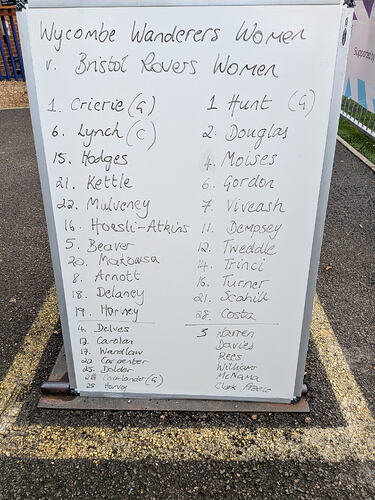 Wycombe Wanderers Women
v. Bristol Rovers Women
1. Crierie (G)
6. Lynch (C)
15. Hodges
21. Kettle
22. Mulveney
16. Hoesli-Atkins
5. Beaver
20.
8. Arnott
18. Delaney
19. Harney
4. Delves
12. Carolan
17. Wardlaw
22 Carpenter
25. Dolder
28 (G)
29 Harvey
1 Hunt (G)
2. Douglas
4. Moises
6. Gordon
7. Viveash
11. Dempsey
12. Tweddle
14. Trinci
16. Turner
21. Scahill
28. Costa
3 Warren
Davies
Rees
William
McNama
Clark
Supported by